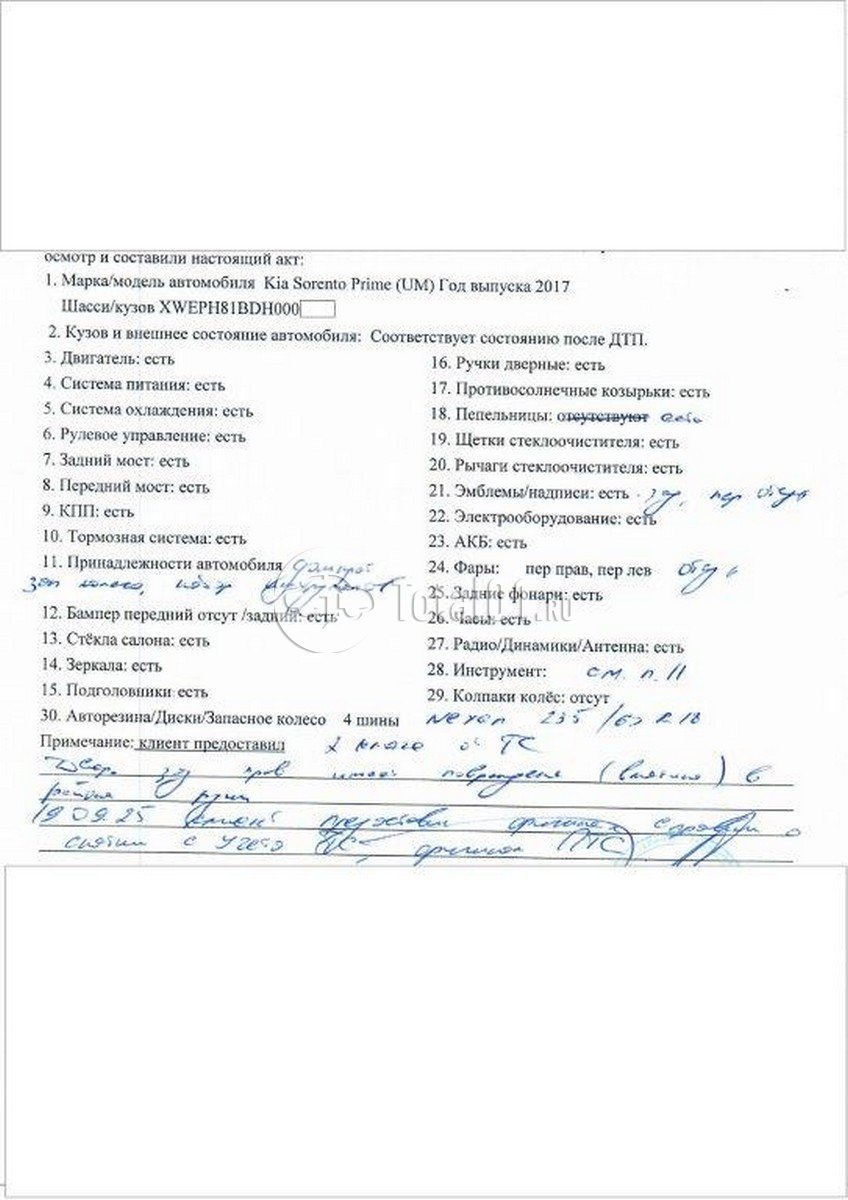 осмотр и составили настоящий акт:
1. Марка/модель автомобиля Kia Sorento Prime (UM) Год выпуска 2017
Шасси/кузов XWEPH81BDH000
2. Кузов и внешнее состояние автомобиля: Соответствует состоянию после ДТП.
3. Двигатель: есть
4. Система питания: есть
5. Система охлаждения: есть
6. Рулевое управление: есть
7. Задний мост: есть
8. Передний мост: есть
9. КПП: есть
10. Тормозная система: есть
11. Принадлежности автомобиля домкрат
зап колесо, набор инструментов
12. Бампер передний отсут /задний: есть
13. Стёкла салона: есть
14. Зеркала: есть
15. Подголовники: есть
16. Ручки дверные: есть
17. Противосолнечные козырьки: есть
18. Пепельницы: отсутствуют есть
19. Щетки стеклоочистителя: есть
20. Рычаги стеклоочистителя: есть
21. Эмблемы/надписи: есть зад, пер отсут
22. Электрооборудование: есть
23. АКБ: есть
24. Фары: пер прав, пер лев отсут
25. Задние фонари: есть
26. Часы: есть
27. Радио/Динамики/Антенна: есть
28. Инструмент: см. п. 11
29. Колпаки колёс: отсут
30. Авторезина/Диски/Запасное колесо 4 шины Nexen 235 / R18
Примечание: клиент предоставил 2 ключа от ТС
Двер. зад прав имеет повреждения (вмятина) в
районе ручки
19.09.25 клиент предоставил оригинал справки о
снятии с учета ТС, оригинал ПТС
Total01.ru